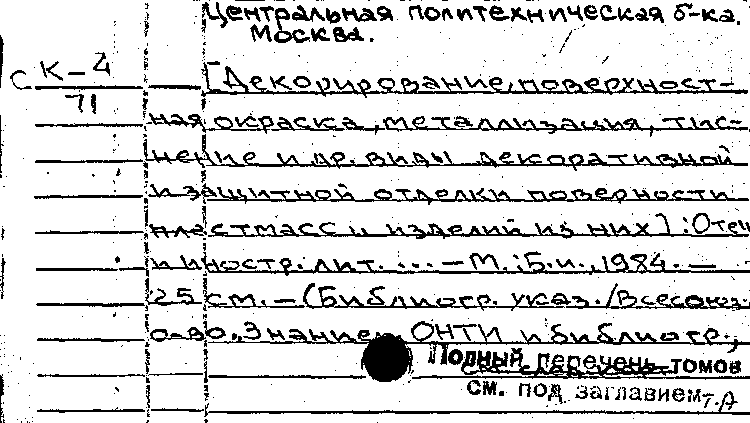 Центральная политехническая б-ка.
Москва.
С К-2
71
[Декорирование, поверхност-
ная окраска, металлизация, тис-
нение и др. виды декоративной
и защитной отделки поверности
пластмасс и изделий из них] : Отеч
и иностр. лит. ... - М. : Б.и., 1984. -
25 см. - (Библиогр. указ. / Всесоюз
о-во "Знание", ОНТИ и библиогр.,
Полный перечень томов
см. под заглавием
т.д